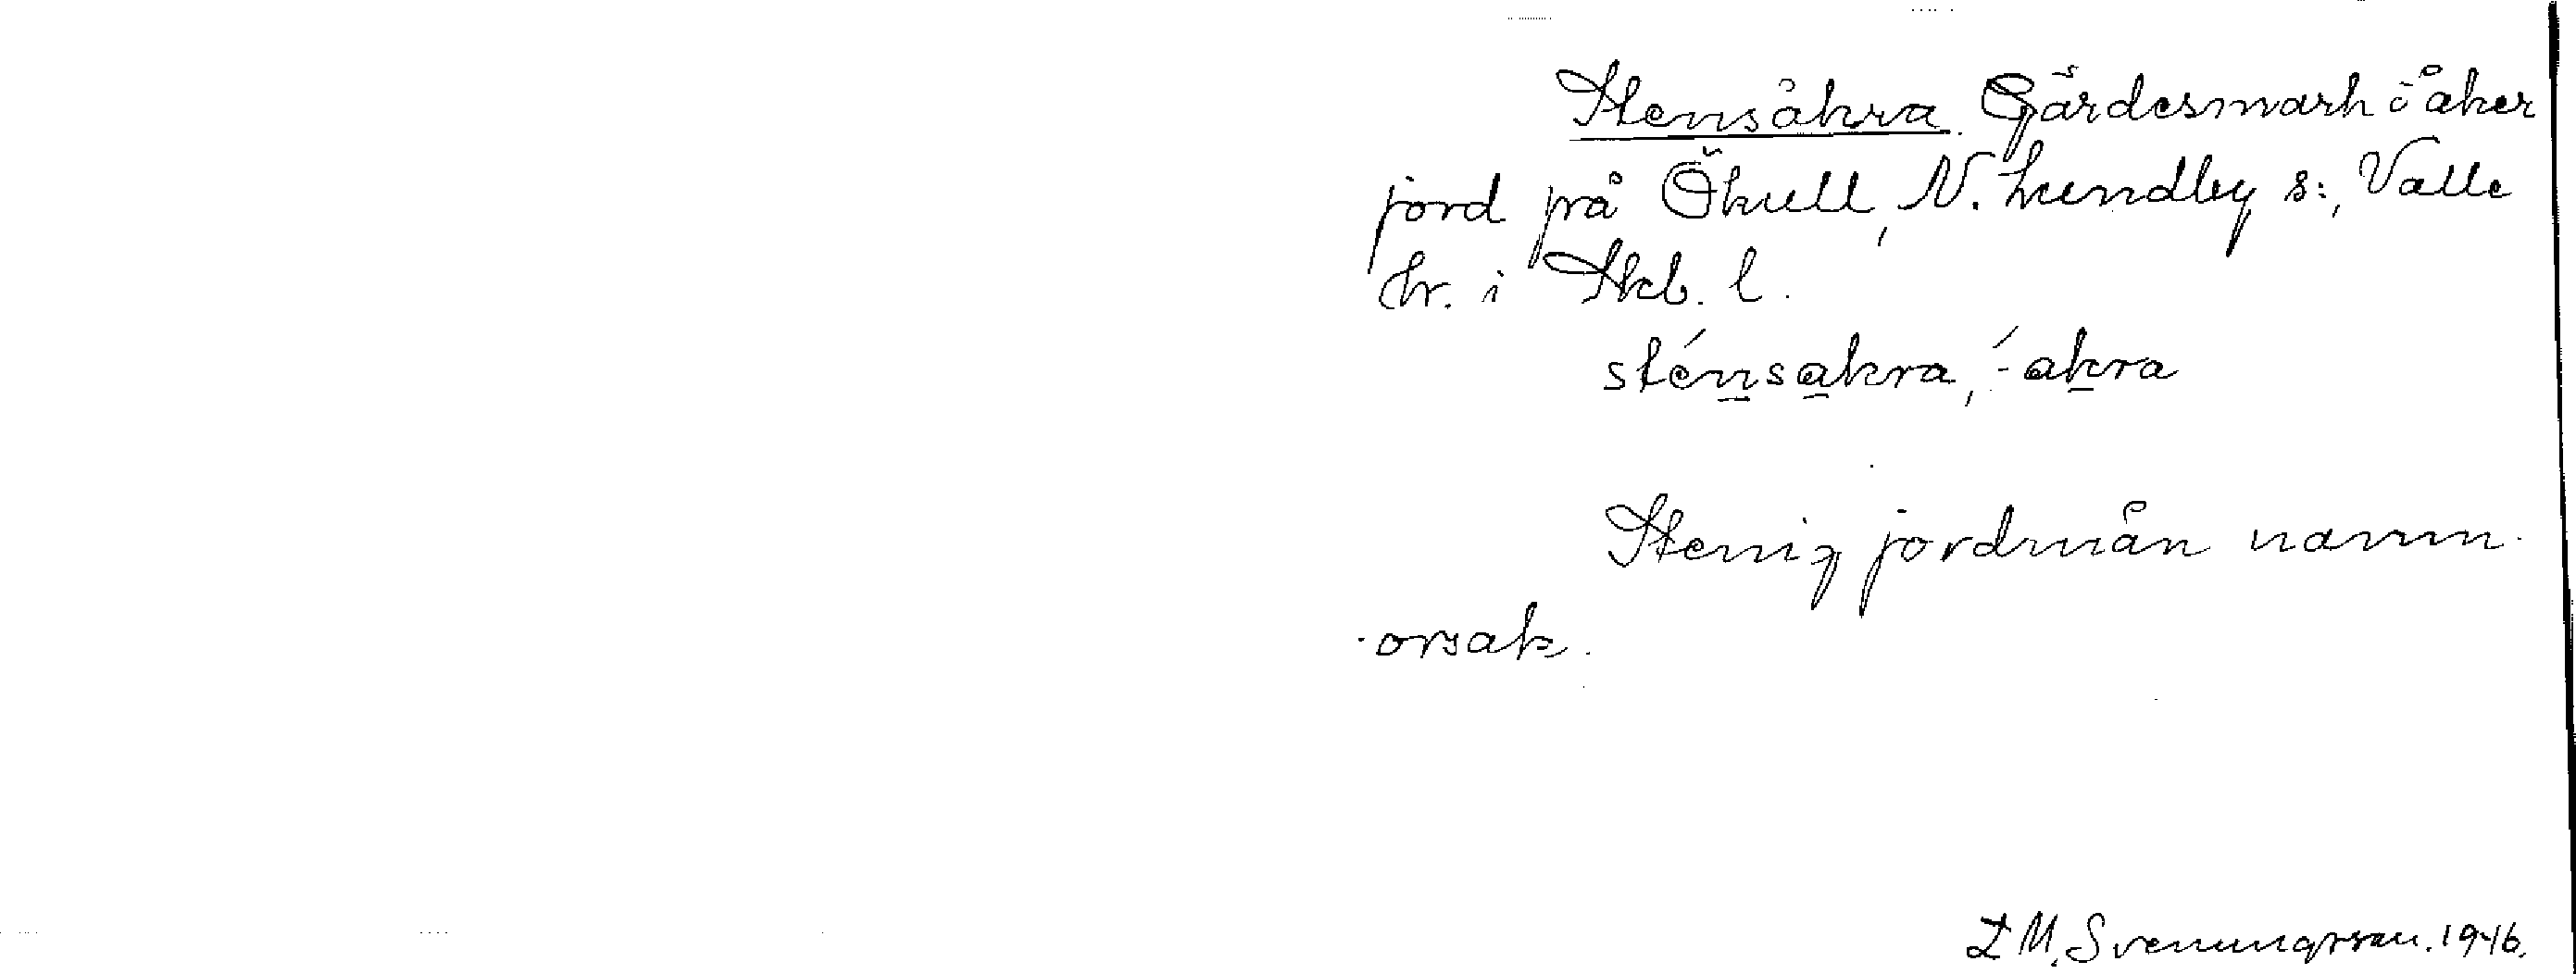 Stensåkra. Gärdesmark o åker
jord på Ökull, N. Lundby s:, Valle
hr. i Skb. l.
sténsakra, -́akra
Stenig jordmån namn-
orsak.
L M. Svenungsson. 1946.